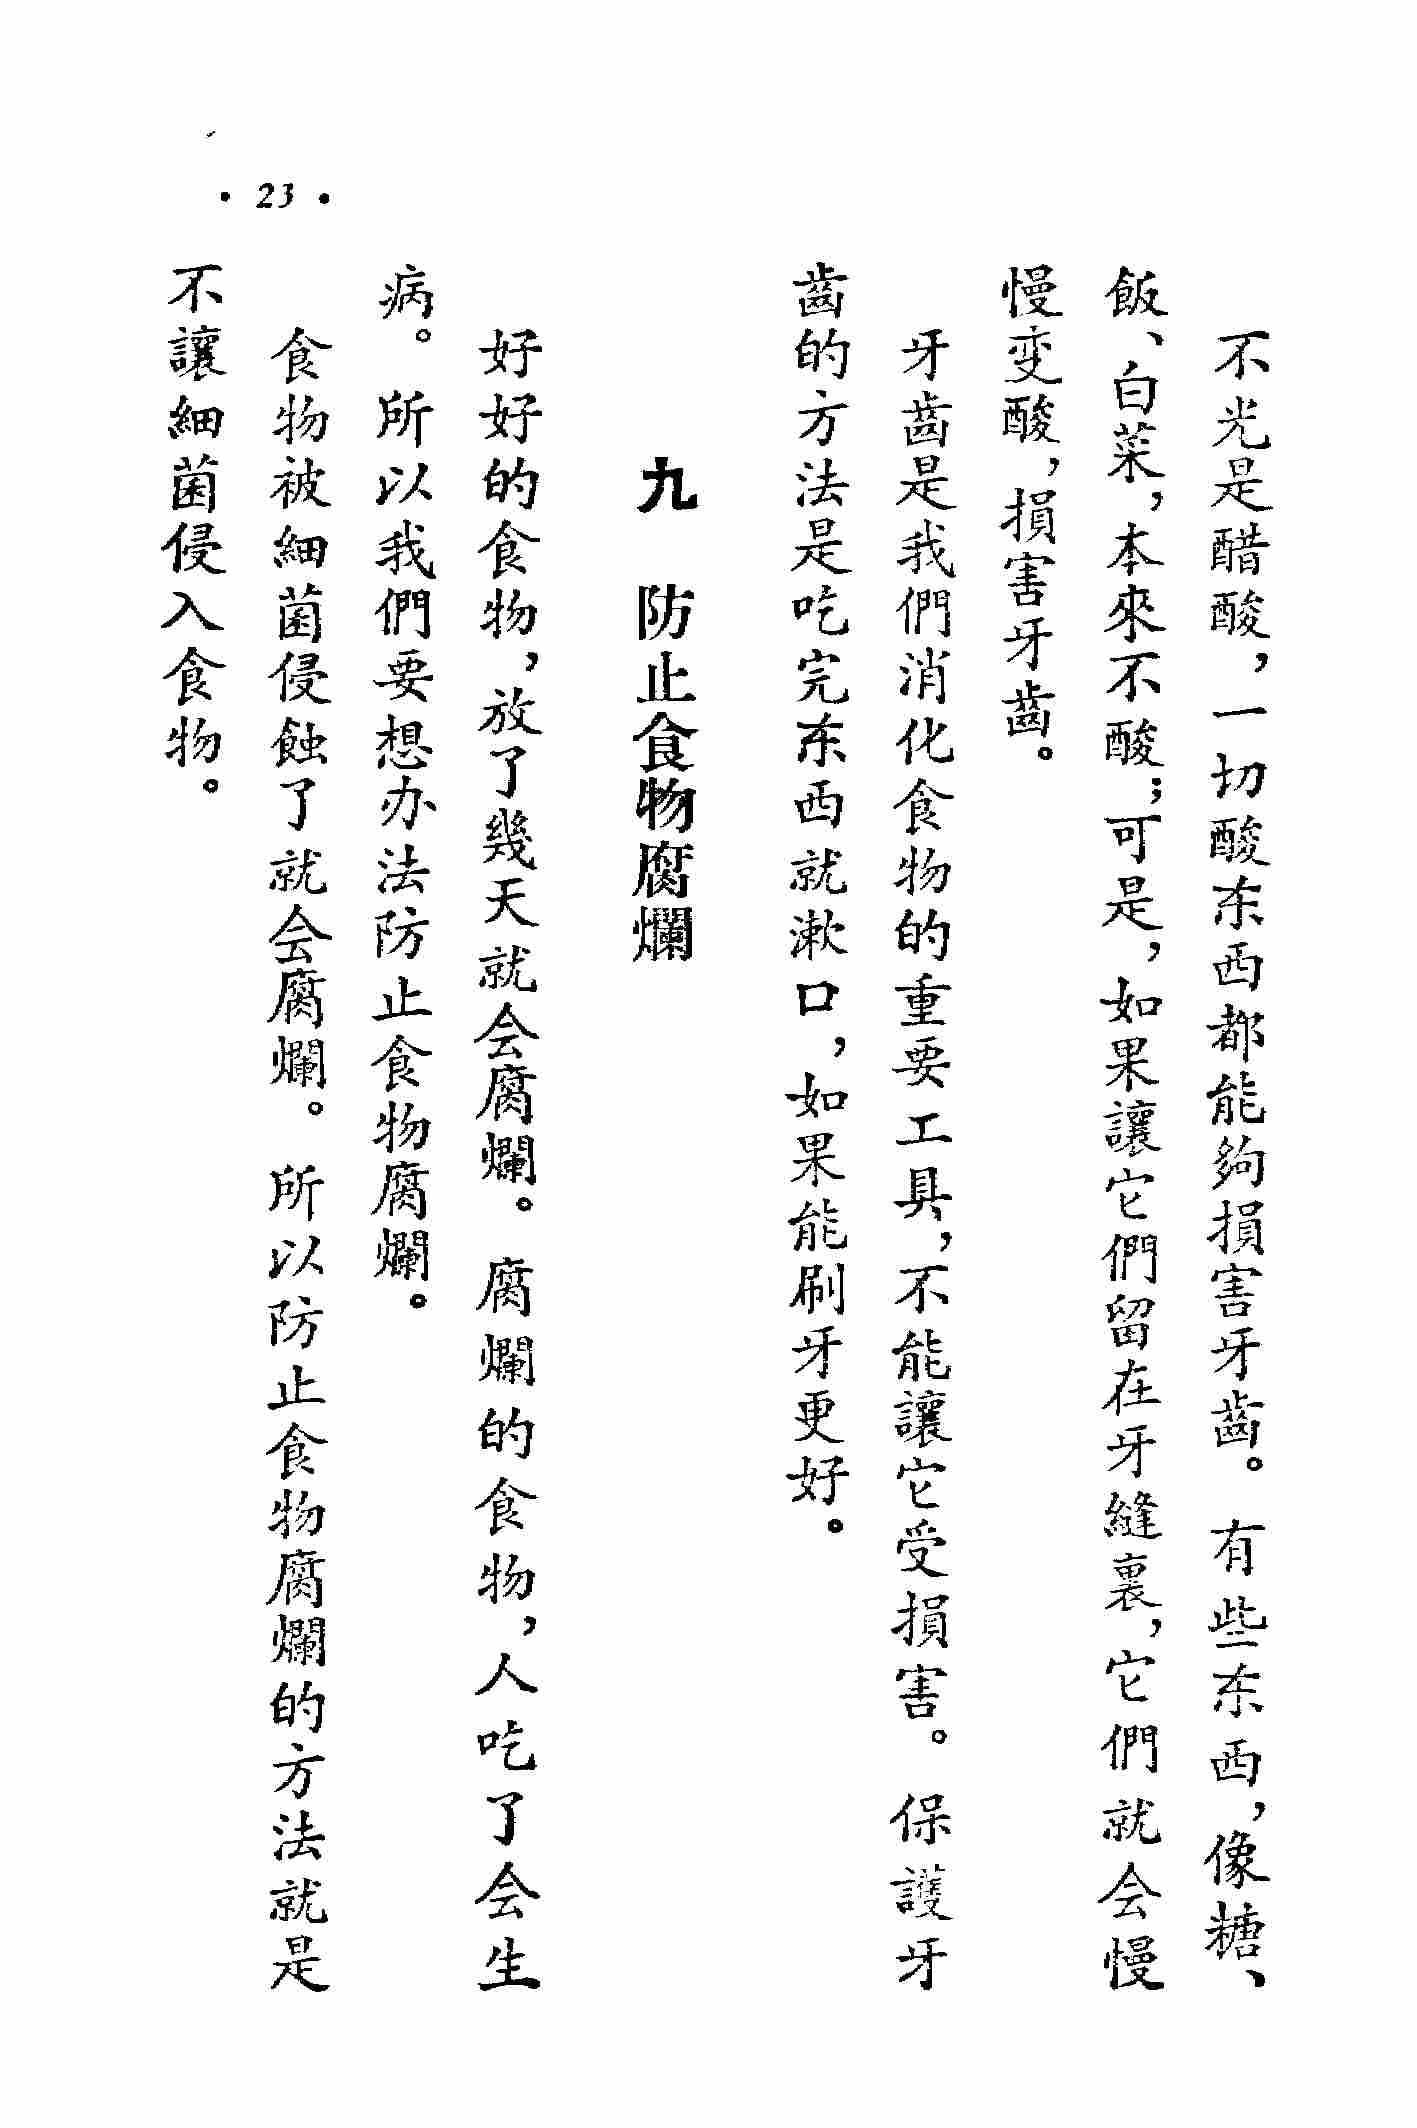 不光是醋酸，一切酸东西都能夠損害牙齒。有些东西，像糖、
飯、白菜，本來不酸；可是，如果讓它們留在牙縫裏，它們就会慢
慢变酸，損害牙齒。
牙齒是我們消化食物的重要工具，不能讓它受損害。保護牙
齒的方法是吃完东西就漱口，如果能刷牙更好。
九　防止食物腐爛
好好的食物，放了幾天就会腐爛。腐爛的食物，人吃了会生
病。所以我們要想办法防止食物腐爛。
食物被細菌侵蝕了就会腐爛。所以防止食物腐爛的方法就是
不讓細菌侵入食物。
· 23 ·